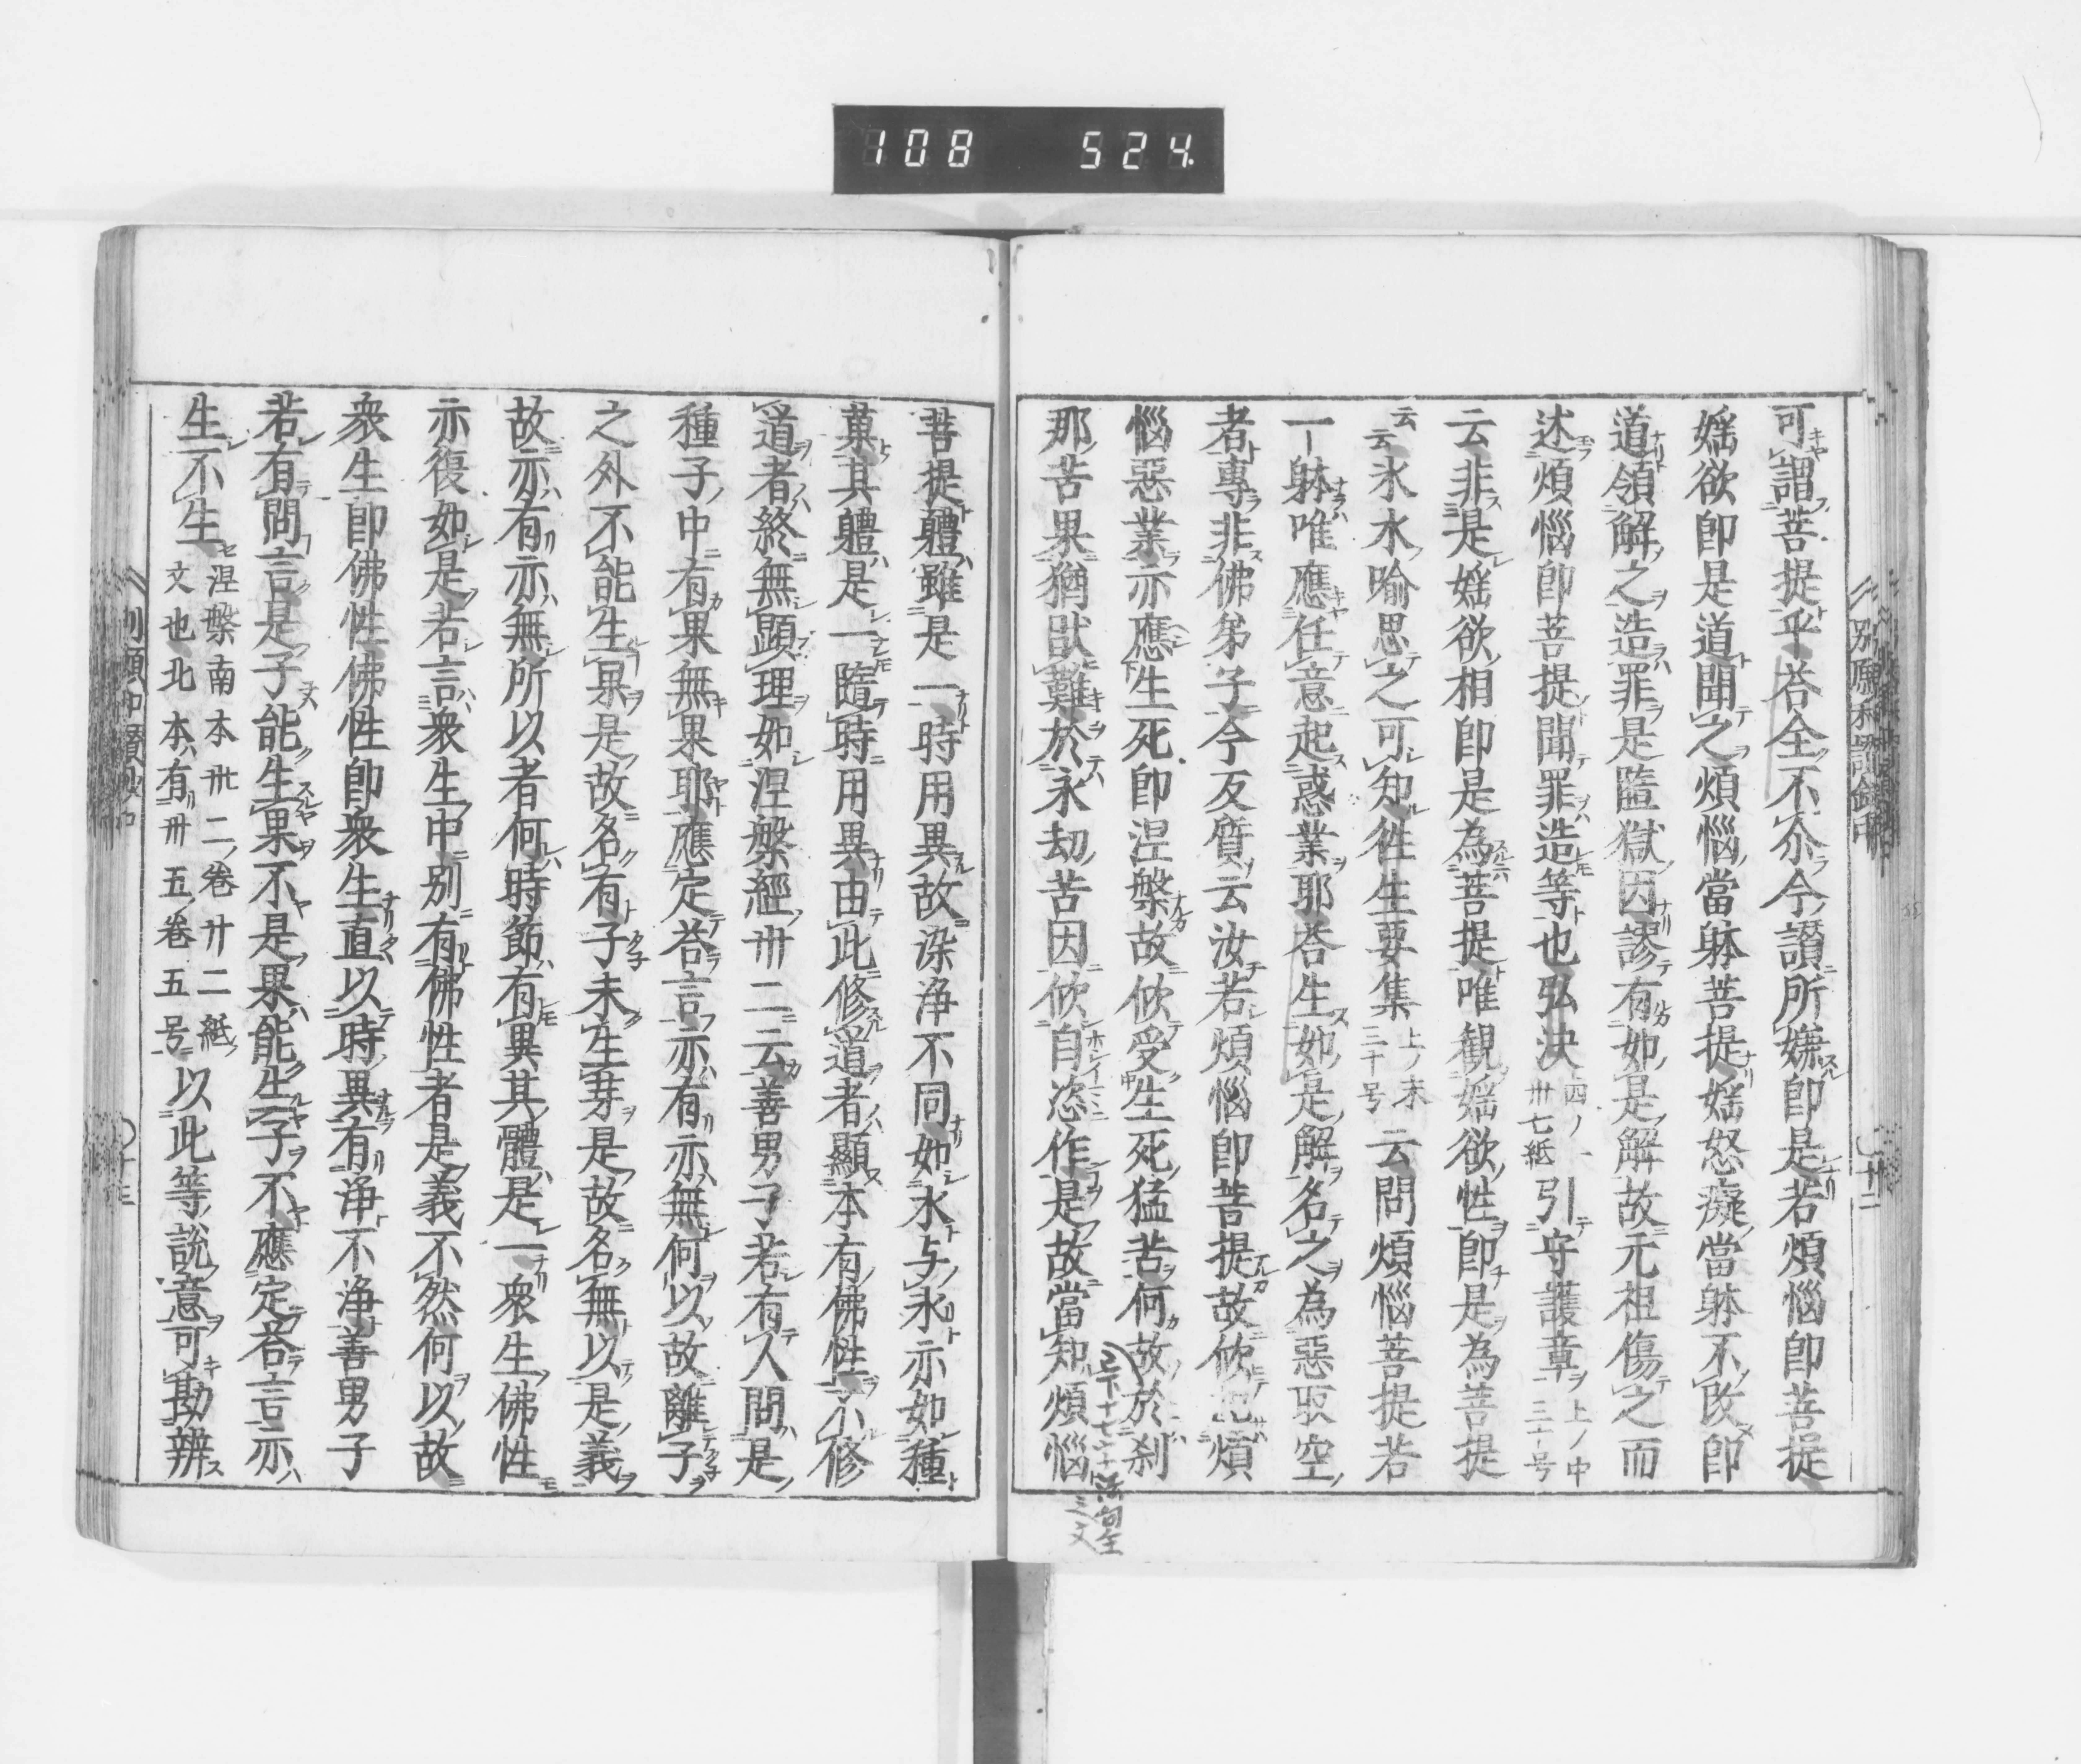 108 524.
可謂菩提乎荅全不尒今讃所嫌即是若煩惱即菩提
婬欲即是道聞之煩惱當躰菩提婬怒癡當躰不改即
道領解之造罪是墮獄因謬有如是解故元祖傷之而
述煩惱即菩提聞罪造等也弘決四ノ一卅七紙引守護章上ノ中三十号
云非是婬欲相即是為菩提唯観婬欲性即是為菩提
云云氷水喻思之可知徃生要集上ノ末三十号云問煩惱菩提若
一躰唯應任意起惑業耶荅生如是解名之為惡取空
者專非佛弟子今反質云汝若煩惱即菩提故欣起煩
惱惡業亦應生死即涅槃故欣受生死猛苦何故於刹
那苦果猶猒難於永劫苦因欣自恣作是故當知煩惱
菩提體雖是一時用異故染浄不同如水与氷亦如種
菓其體是一隨時用異由此修道者顯本有佛性不修
道者終無顯理如涅槃經卅二云善男子若有人問是
種子中有果無果耶應定荅言亦有亦無何以故離子
之外不能生果是故名有子未生芽是故名無以是義
故亦有亦無所以者何時節有異其體是一衆生佛性
亦復如是若言衆生中別有佛性者是義不然何以故
衆生即佛性佛性即衆生直以時異有浄不浄善男子
若有問言是子能生果不是果能生子不應定荅言亦
生不生涅槃南本卅二卷廿二紙文也北本有卅五卷五号以此等說意可勘辨